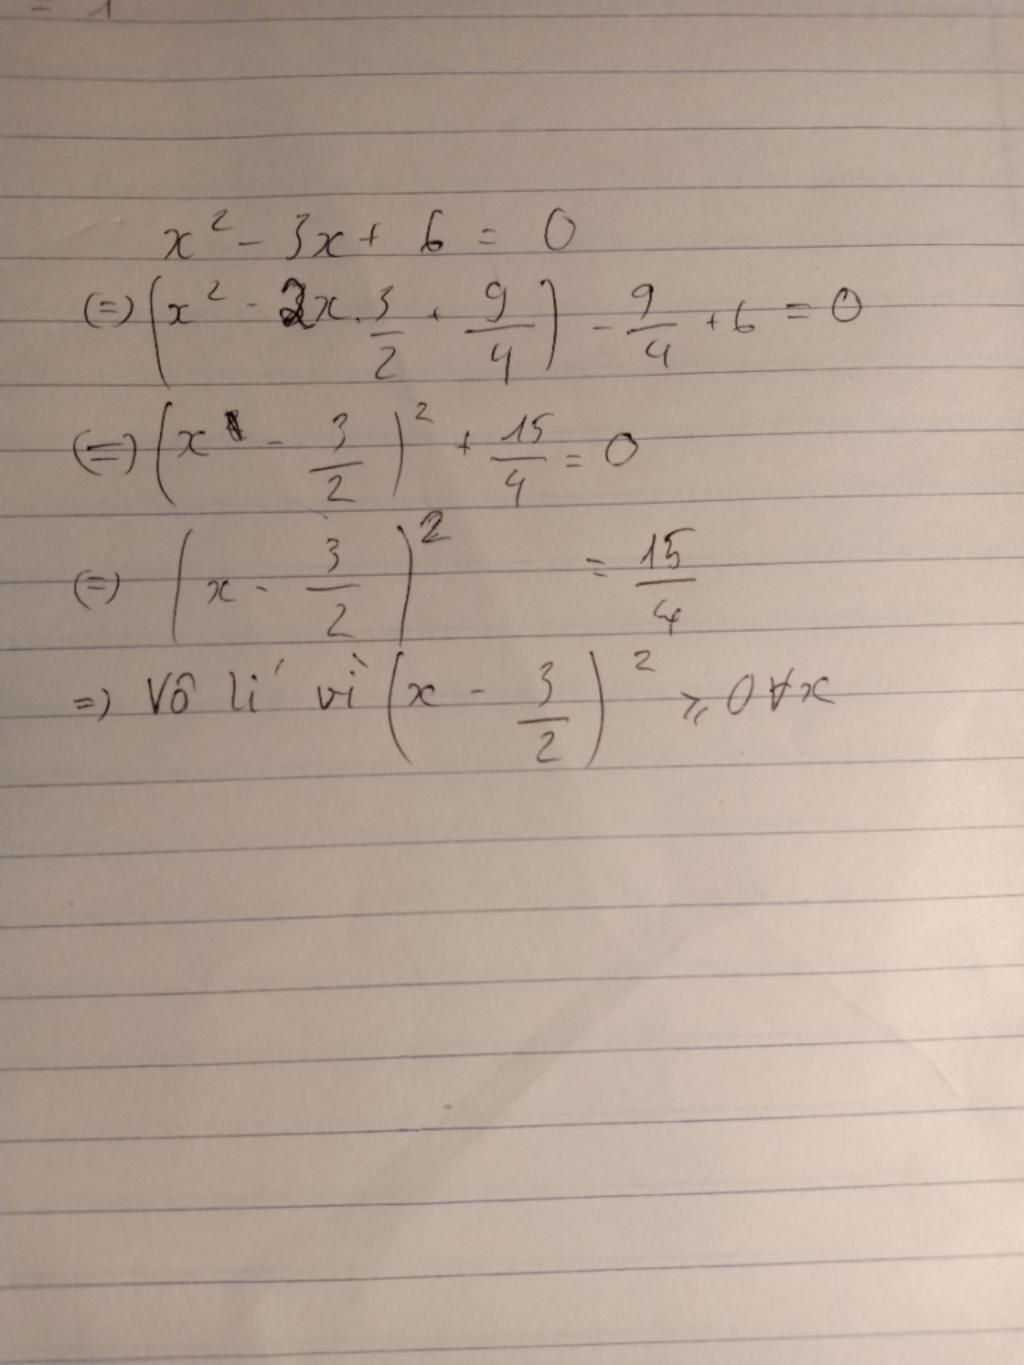 = 1
x² - 3x + 6 = 0
(=) (x² - 2x . 3/2 + 9/4) - 9/4 + 6 = 0
(=) (x - 3/2)² + 15/4 = 0
(=) (x - 3/2)² = 15/4
=) Vô lí vì (x - 3/2)² ≥ 0 ∀x